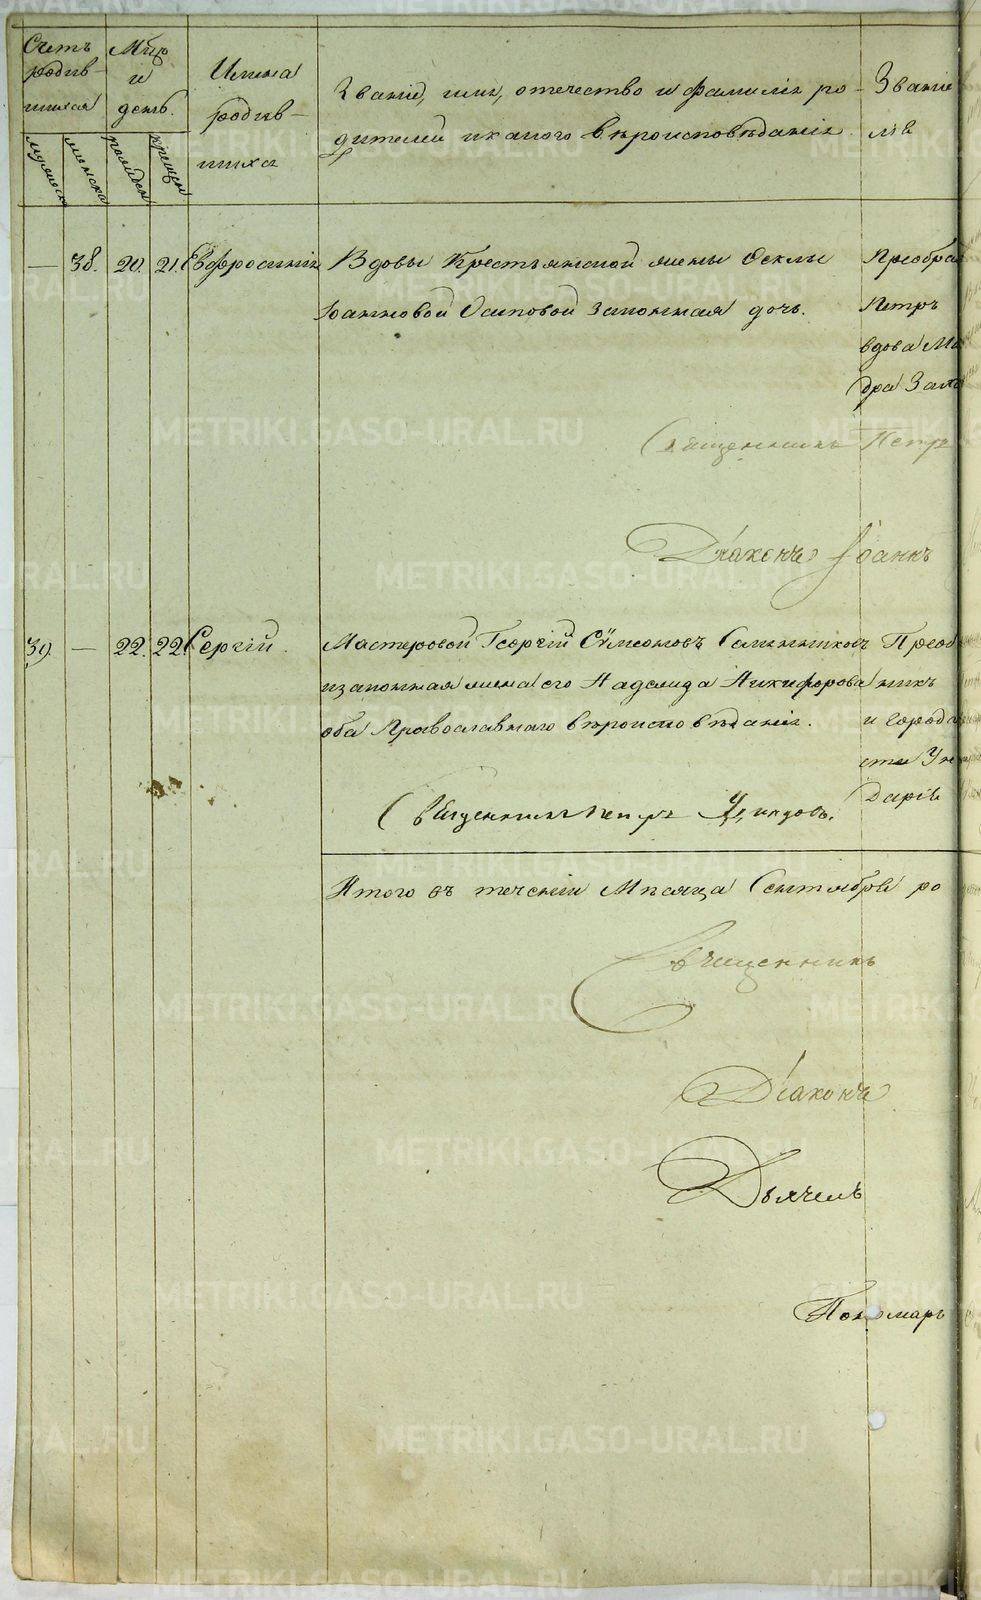 Счетъ родив-шихся
Мѣц и день.
Имена родив-шихся
Званіе, имя, отечество и фамилія ро-
дителей и какого вѣроисповѣданія
Званіе
мужеска
женска
рожден
крещен
— 38. 20. 21. Евфросинія Вдовы Крестьянской жены Феклы Преобра
Іоанновой Осиповой законная дочь. Петръ
вдова Ма
дра Зап
Священникъ Петръ
Діаконъ Іоаннъ
39. — 22. 22. Сергій. Мастеровой Георгій Сѵмеоновъ Санниковъ Преоб
и законная жена его Надежда Никифорова никъ
оба Православнаго вѣроисповѣданія. и города
сти
Дарія
Священникъ Петръ
Итого въ теченіи Мѣсяца Сентября ро
Священникъ
Діаконъ
Дьячекъ
Пономарь
METRIKI.GASO-URAL.RU